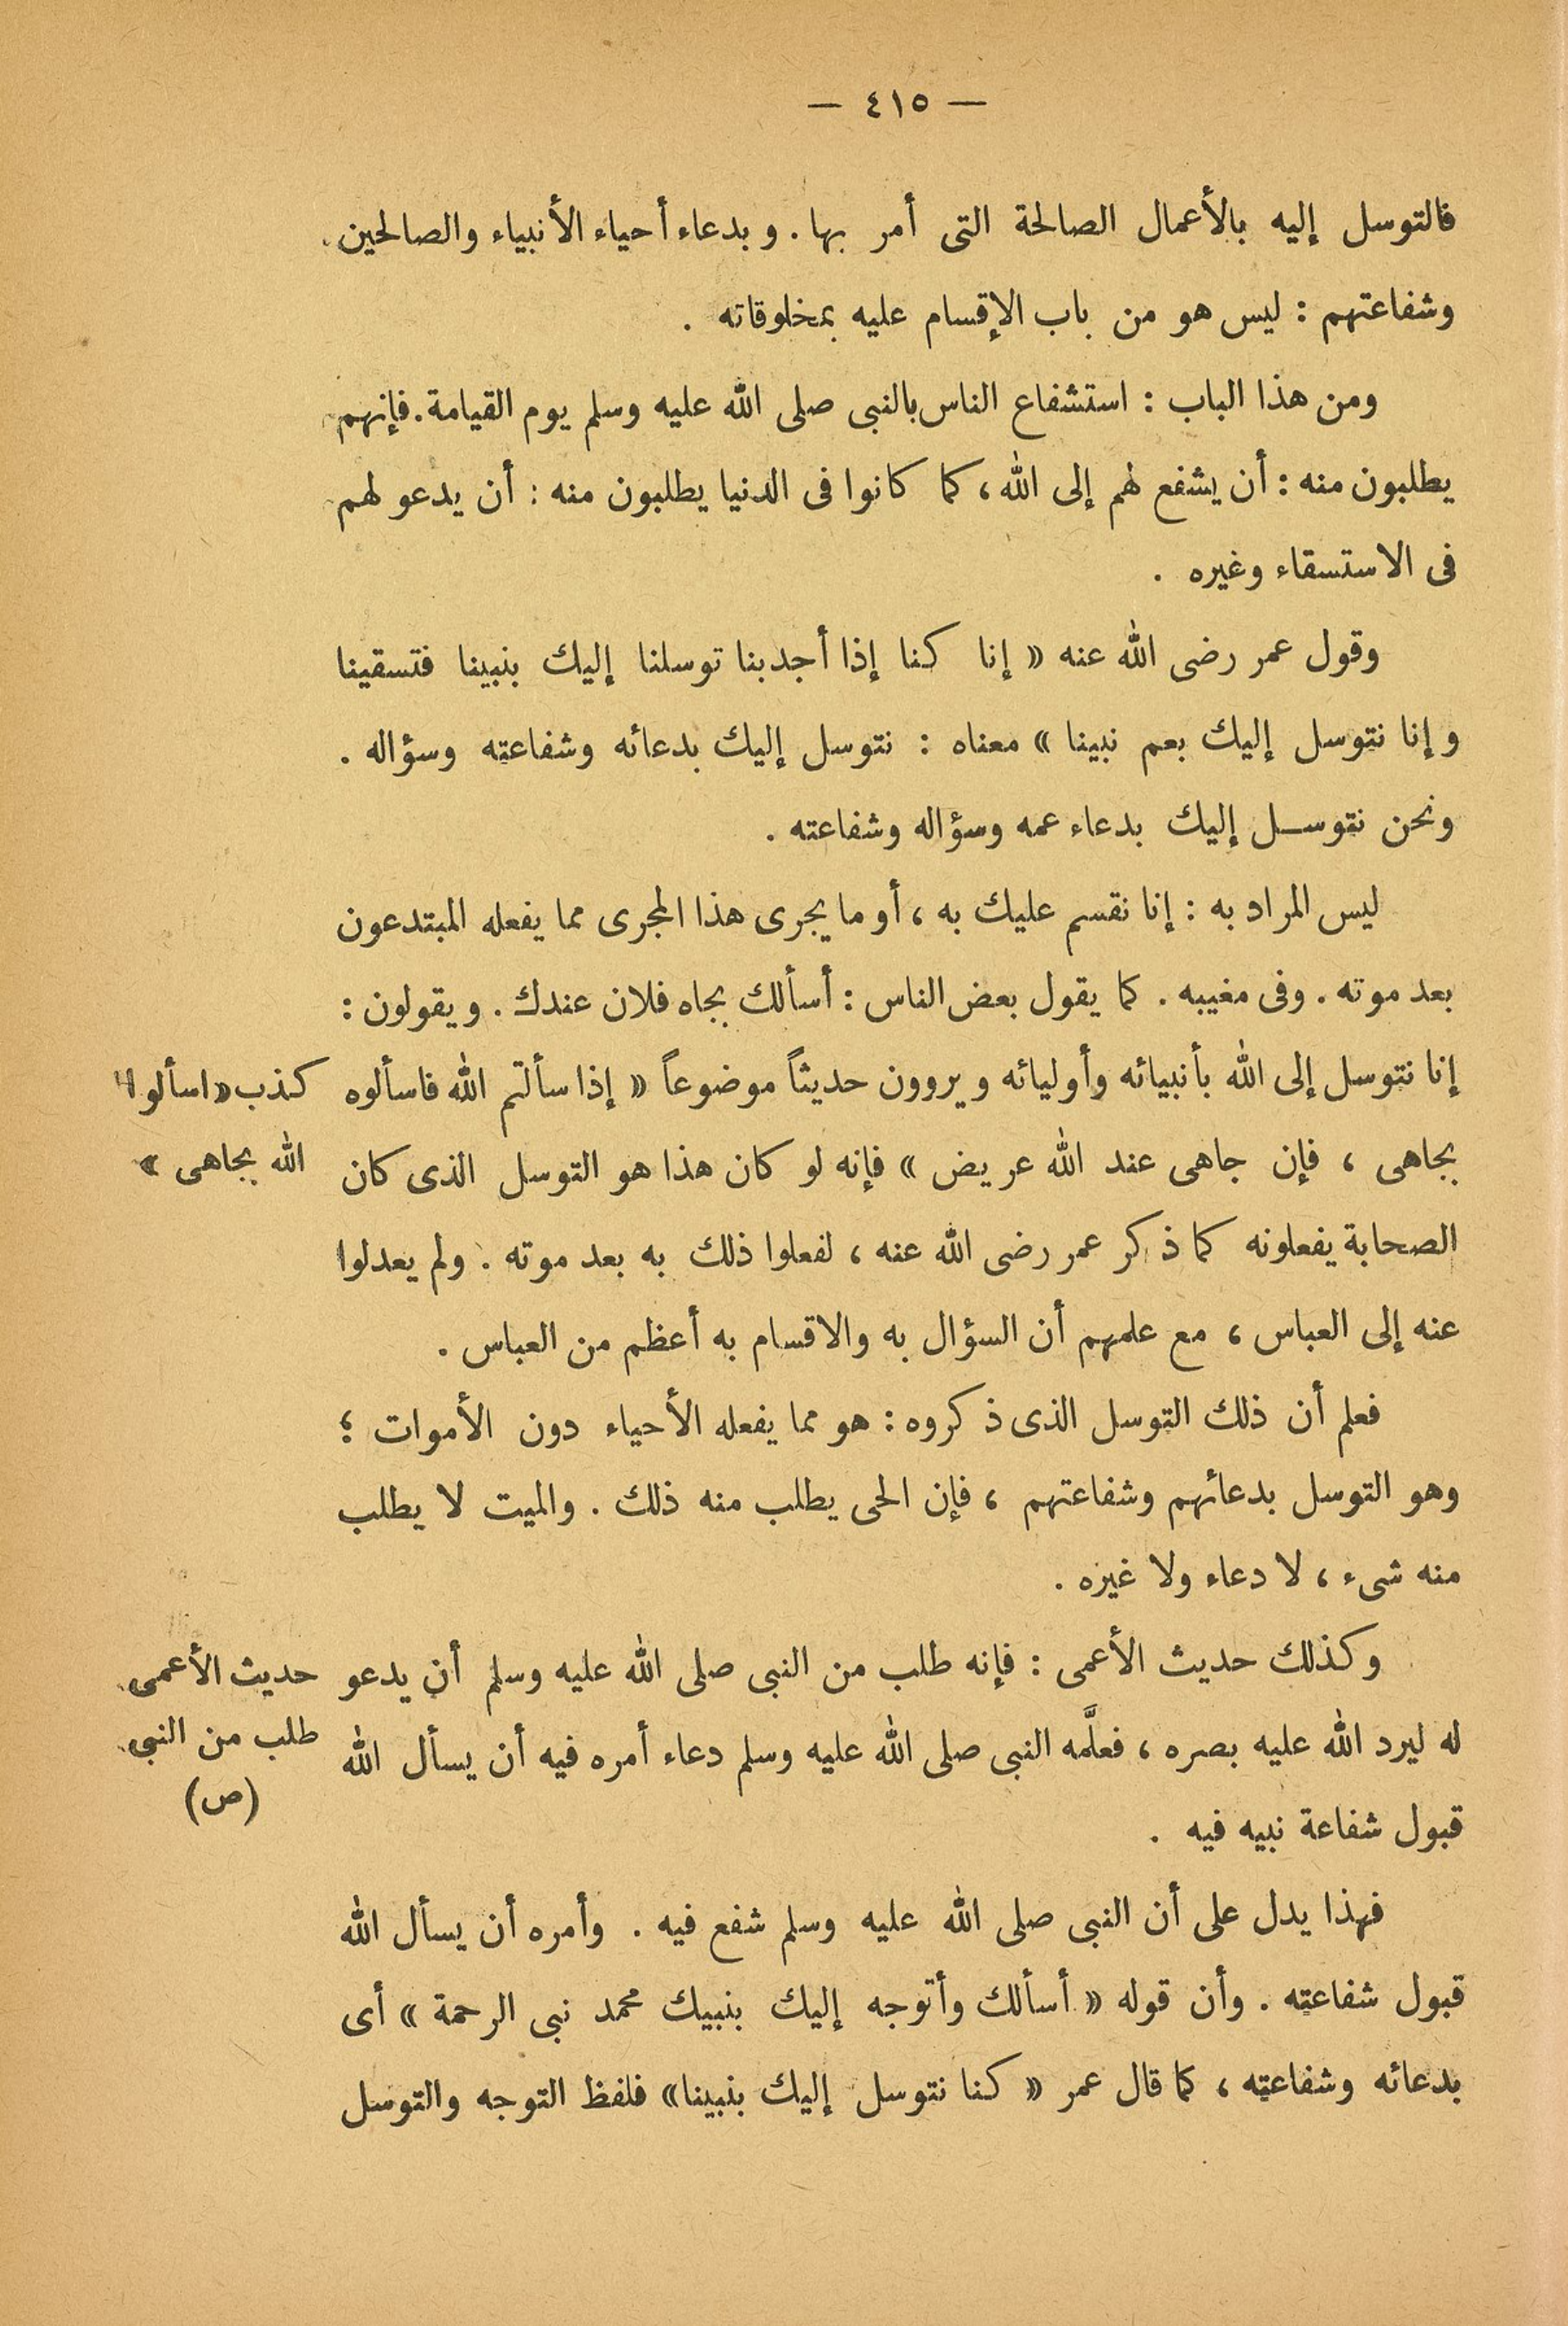 — ٤١٥ —
فالتوسل إليه بالأعمال الصالحة التى أمر بها . وبدعاء أحياء الأنبياء والصالحين
وشفاعتهم : ليس هو من باب الإقسام عليه بمخلوقاته .
ومن هذا الباب : استشفاع الناس بالنبى صلى الله عليه وسلم يوم القيامة . فإنهم
يطلبون منه : أن يشفع لهم إلى الله ، كما كانوا فى الدنيا يطلبون منه : أن يدعو لهم
فى الاستسقاء وغيره .
وقول عمر رضى الله عنه « إنا كنا إذا أجدبنا توسلنا إليك بنبينا فتسقينا
وإنا نتوسل إليك بعم نبينا » معناه : نتوسل إليك بدعائه وشفاعته وسؤاله .
ونحن نتوسـل إليك بدعاء عمه وسؤاله وشفاعته .
ليس المراد به : إنا نقسم عليك به ، أو ما يجرى هذا المجرى مما يفعله المبتدعون
بعد موته . وفى مغيبه . كما يقول بعض الناس : أسألك بجاه فلان عندك . ويقولون :
إنا نتوسل إلى الله بأنبيائه وأوليائه ويروون حديثاً موضوعاً « إذا سألتم الله فاسألوه
بجاهى ، فإن جاهى عند الله عريض » فإنه لو كان هذا هو التوسل الذى كان
الصحابة يفعلونه كما ذكر عمر رضى الله عنه ، لفعلوا ذلك به بعد موته . ولم يعدلوا
عنه إلى العباس ، مع علمهم أن السؤال به والاقسام به أعظم من العباس .
فعلم أن ذلك التوسل الذى ذكروه : هو مما يفعله الأحياء دون الأموات ؛
وهو التوسل بدعائهم وشفاعتهم ، فإن الحى يطلب منه ذلك . والميت لا يطلب
منه شىء ، لا دعاء ولا غيره .
وكذلك حديث الأعمى : فإنه طلب من النبى صلى الله عليه وسلم أن يدعو
له ليرد الله عليه بصره ، فعلَّمه النبى صلى الله عليه وسلم دعاء أمره فيه أن يسأل الله
قبول شفاعة نبيه فيه .
فهذا يدل على أن النبى صلى الله عليه وسلم شفع فيه . وأمره أن يسأل الله
قبول شفاعته . وأن قوله « أسألك وأتوجه إليك بنبيك محمد نبى الرحمة » أى
بدعائه وشفاعته ، كما قال عمر « كنا نتوسل إليك بنبينا » فلفظ التوجه والتوسل
كذب « اسألوا
الله بجاهى »
حديث الأعمى
طلب من النبى
(ص)